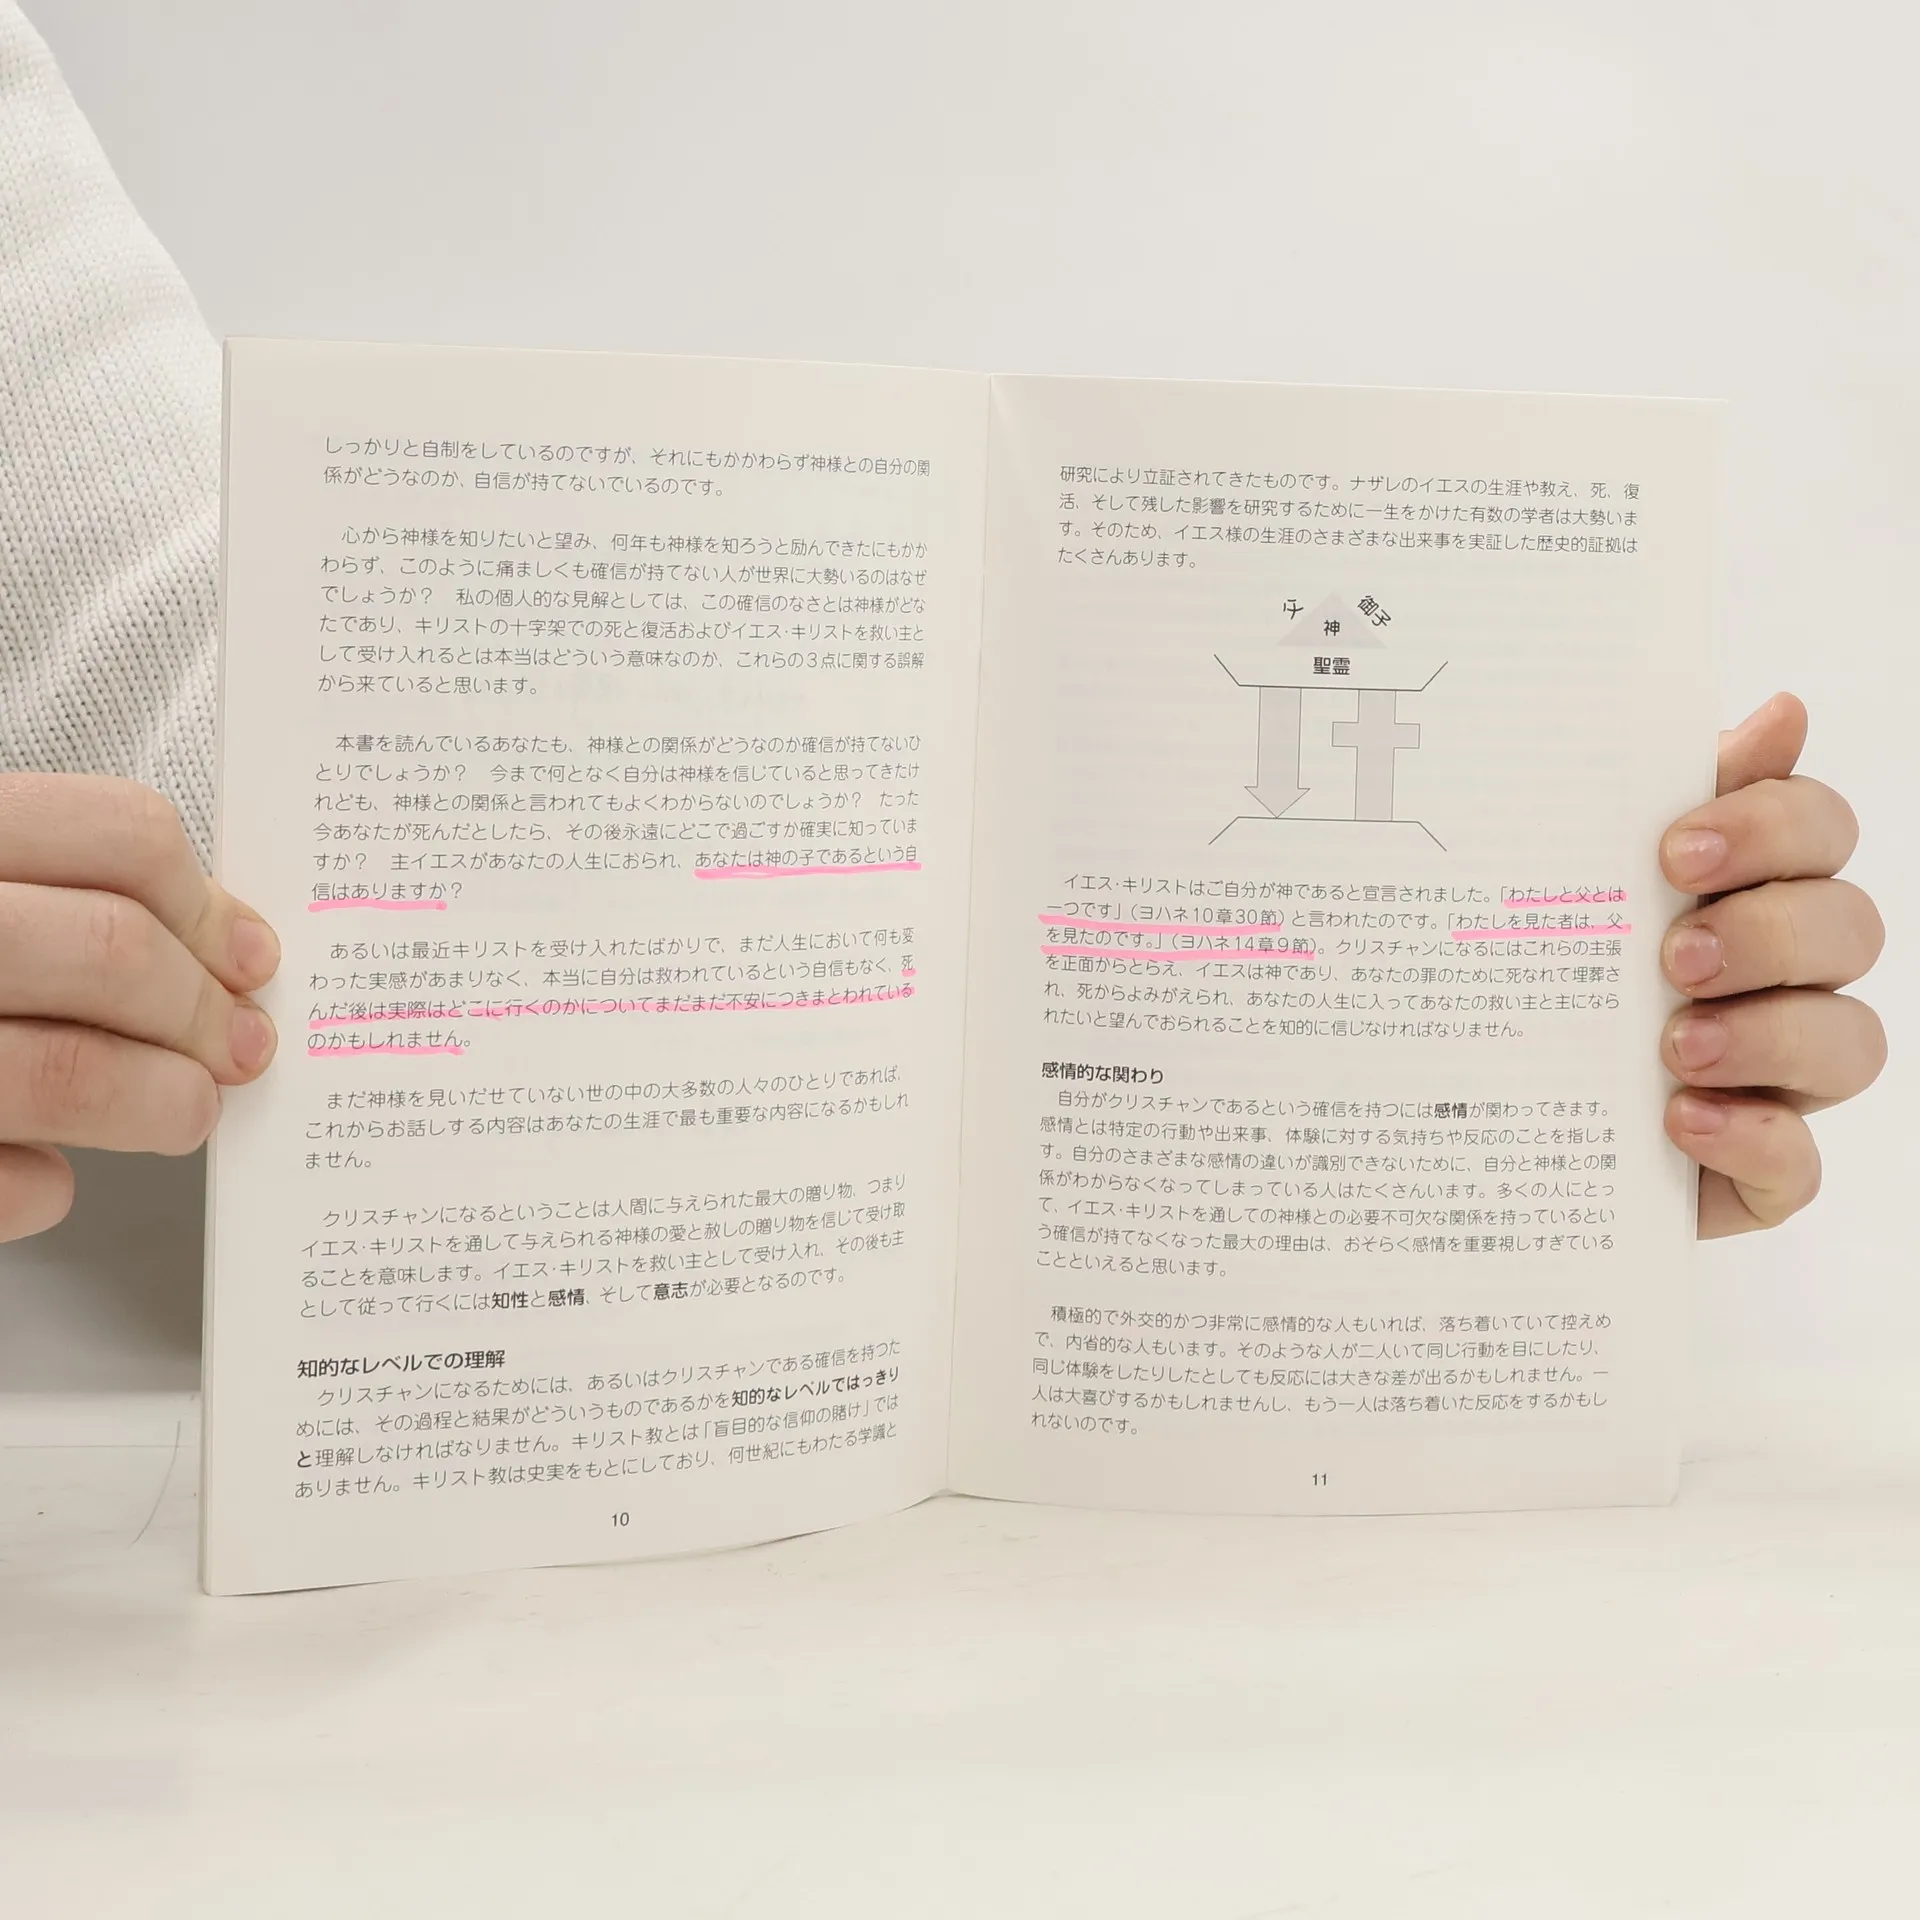 しっかりと自制をしているのですが、それにもかかわらず神様との自分の関
係がどうなのか、自信が持てないでいるのです。
心から神様を知りたいと望み、何年も神様を知ろうと励んできたにもかか
わらず、このように痛ましくも確信が持てない人が世界に大勢いるのはなぜ
でしょうか？　私の個人的な見解としては、この確信のなさとは神様がどな
たであり、キリストの十字架での死と復活およびイエス・キリストを救い主と
して受け入れるとは本当はどういう意味なのか、これらの３点に関する誤解
から来ていると思います。
本書を読んでいるあなたも、神様との関係がどうなのか確信が持てないひ
とりでしょうか？　今まで何となく自分は神様を信じていると思ってきたけ
れども、神様との関係と言われてもよくわからないのでしょうか？　たった
今あなたが死んだとしたら、その後永遠にどこで過ごすか確実に知っていま
すか？　主イエスがあなたの人生におられ、あなたは神の子であるという自
信はありますか？
あるいは最近キリストを受け入れたばかりで、まだ人生において何も変
わった実感があまりなく、本当に自分は救われているという自信もなく、死
んだ後は実際はどこに行くのかについてまだまだ不安につきまとわれている
のかもしれません。
まだ神様を見いだせていない世の中の大多数の人々のひとりであれば、
これからお話しする内容はあなたの生涯で最も重要な内容になるかもしれ
ません。
クリスチャンになるということは人間に与えられた最大の贈り物、つまり
イエス・キリストを通して与えられる神様の愛と赦しの贈り物を信じて受け取
ることを意味します。イエス・キリストを救い主として受け入れ、その後も主
として従って行くには知性と感情、そして意志が必要となるのです。
知的なレベルでの理解
クリスチャンになるためには、あるいはクリスチャンである確信を持つた
めには、その過程と結果がどういうものであるかを知的なレベルではっきり
と理解しなければなりません。キリスト教とは「盲目的な信仰の賭け」では
ありません。キリスト教は史実をもとにしており、何世紀にもわたる学識と
10
研究により立証されてきたものです。ナザレのイエスの生涯や教え、死、復
活、そして残した影響を研究するために一生をかけた有数の学者は大勢いま
す。そのため、イエス様の生涯のさまざまな出来事を実証した歴史的証拠は
たくさんあります。
父
御子
神
聖霊
イエス・キリストはご自分が神であると宣言されました。「わたしと父とは
一つです」（ヨハネ10章30節）と言われたのです。「わたしを見た者は、父
を見たのです。」（ヨハネ14章９節）。クリスチャンになるにはこれらの主張
を正面からとらえ、イエスは神であり、あなたの罪のために死なれて埋葬さ
れ、死からよみがえられ、あなたの人生に入ってあなたの救い主と主になら
れたいと望んでおられることを知的に信じなければなりません。
感情的な関わり
自分がクリスチャンであるという確信を持つには感情が関わってきます。
感情とは特定の行動や出来事、体験に対する気持ちや反応のことを指しま
す。自分のさまざまな感情の違いが識別できないために、自分と神様との関
係がわからなくなってしまっている人はたくさんいます。多くの人にとっ
て、イエス・キリストを通しての神様との必要不可欠な関係を持っているとい
う確信が持てなくなった最大の理由は、おそらく感情を重要視しすぎている
ことといえると思います。
積極的で外交的かつ非常に感情的な人もいれば、落ち着いていて控えめ
で、内省的な人もいます。そのような人が二人いて同じ行動を目にしたり、
同じ体験をしたりしたとしても反応には大きな差が出るかもしれません。一
人は大喜びするかもしれませんし、もう一人は落ち着いた反応をするかもし
れないのです。
11